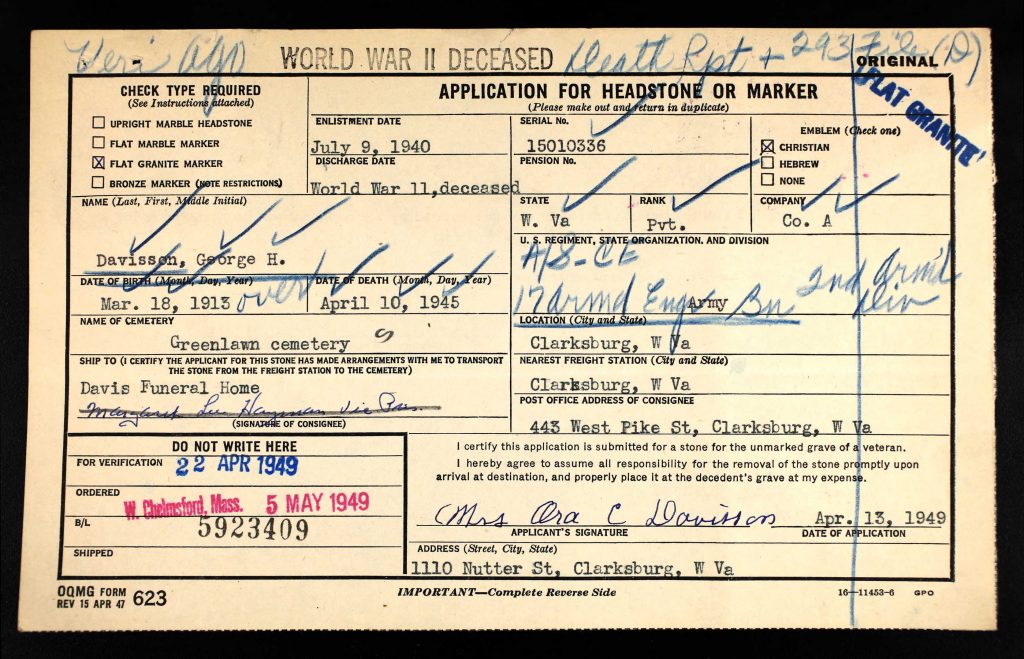 Veri Ago WORLD WAR II DECEASED Death Rpt + 293 File (D)
ORIGINAL
FLAT GRANITE
CHECK TYPE REQUIRED
(See Instructions attached)
UPRIGHT MARBLE HEADSTONE
FLAT MARBLE MARKER
☒ FLAT GRANITE MARKER
BRONZE MARKER (NOTE RESTRICTIONS)
APPLICATION FOR HEADSTONE OR MARKER
(Please make out and return in duplicate)
ENLISTMENT DATE
July 9, 1940
DISCHARGE DATE
World War 11,deceased
SERIAL No.
15010336
PENSION No.
EMBLEM (Check one)
☒ CHRISTIAN
HEBREW
NONE
NAME (Last, First, Middle Initial)
Davisson, George H.
STATE
W. Va
RANK
Pvt.
COMPANY
Co. A
U. S. REGIMENT, STATE ORGANIZATION, AND DIVISION
A/S-CE
17 Armd Engr Bn 2nd Arm'd Div
Army
DATE OF BIRTH (Month, Day, Year)
Mar. 18, 1913 over
DATE OF DEATH (Month, Day, Year)
April 10, 1945
NAME OF CEMETERY
Greenlawn cemetery
LOCATION (City and State)
Clarksburg, W Va
SHIP TO (I CERTIFY THE APPLICANT FOR THIS STONE HAS MADE ARRANGEMENTS WITH ME TO TRANSPORT
THE STONE FROM THE FREIGHT STATION TO THE CEMETERY)
Davis Funeral Home
Margaret Lee Hayman Vic Pres.
(SIGNATURE OF CONSIGNEE)
NEAREST FREIGHT STATION (City and State)
Clarksburg, W Va
POST OFFICE ADDRESS OF CONSIGNEE
443 West Pike St, Clarksburg, W Va
DO NOT WRITE HERE
FOR VERIFICATION
22 APR 1949
ORDERED
W. Chelmsford, Mass. 5 MAY 1949
B/L
5923409
SHIPPED
I certify this application is submitted for a stone for the unmarked grave of a veteran.
I hereby agree to assume all responsibility for the removal of the stone promptly upon
arrival at destination, and properly place it at the decedent's grave at my expense.
Mrs Ora C Davisson Apr. 13, 1949
APPLICANT'S SIGNATURE DATE OF APPLICATION
ADDRESS (Street, City, State)
1110 Nutter St, Clarksburg, W Va
OQMG FORM
REV 15 APR 47 623
IMPORTANT—Complete Reverse Side
16—11453-6 GPO